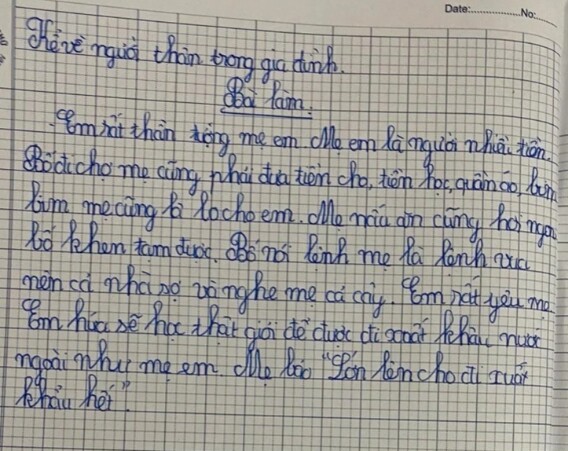 Date: No:
Kể về người thân trong gia đình.
Bài làm.
Em rất thần tượng mẹ em. Mẹ em là người nhiều tiền.
Bố đi chợ mẹ cũng phải đưa tiền cho, tiền học, quần áo, bỉm
lum mẹ cũng lo cho em. Mẹ nấu ăn cũng hơi ngon
bố khen tạm được. Bố nói lệnh mẹ là lệnh vua
nên cả nhà sợ và nghe mẹ cả cây. Em rất yêu mẹ
Em hứa sẽ học thật giỏi để được đi xuất khẩu nước
ngoài như mẹ em. Mẹ bảo "Lớn lên cho đi xuất
khẩu hết"